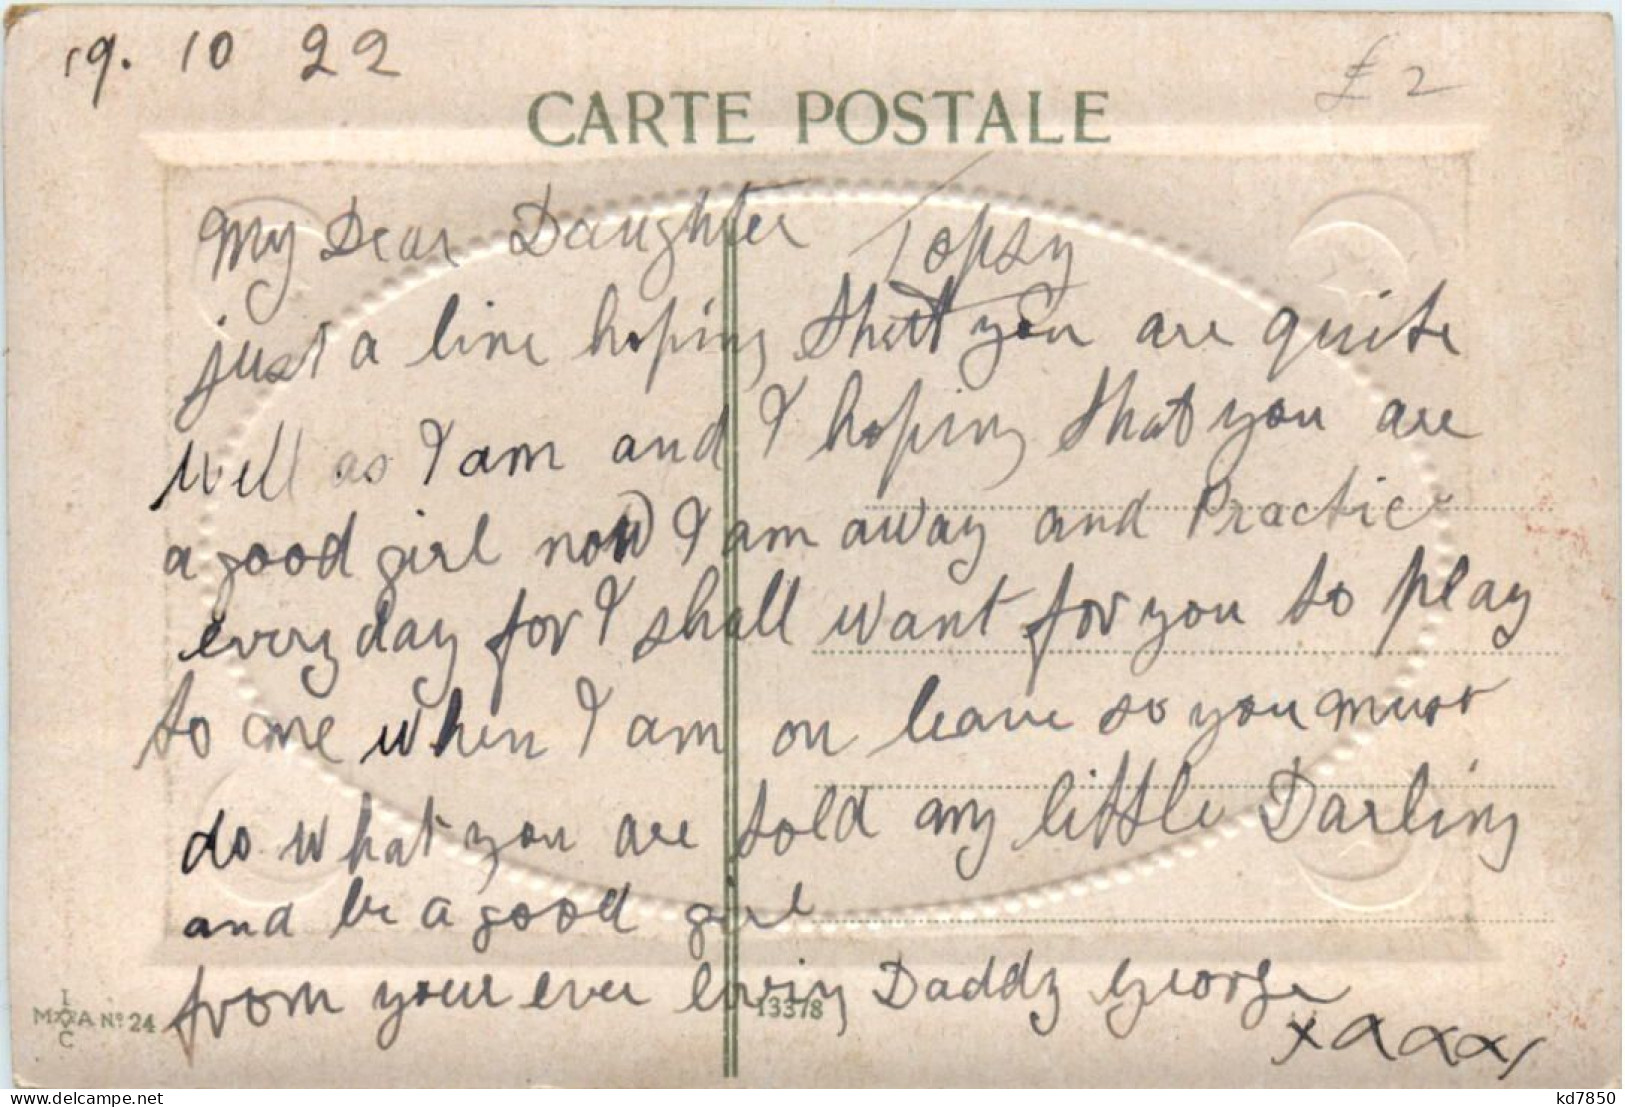 19. 10 22
£2
CARTE POSTALE
My Dear Daughter Topsy
just a line hoping that you are quite
well as I am and I hoping that you are
a good girl now I am away and Practice
every day for I shall want for you to play
to me when I am on leave so you must
do what you are told my little Darling
and be a good girl
from your ever loving Daddy George
xxxxx
I
M A No 24
C
13378
delcampe.net
kd7850